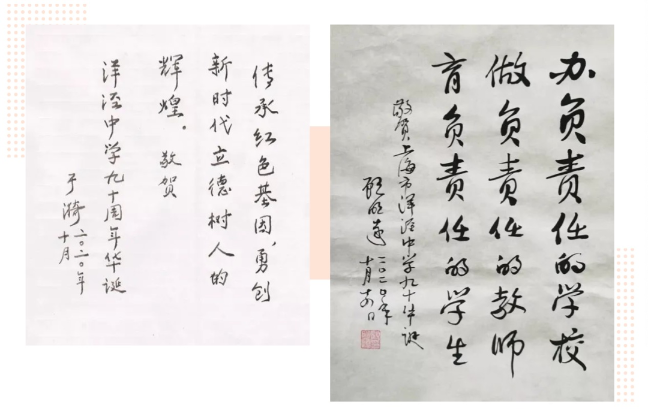 传承红色基因,勇创
新时代立德树人的
辉煌。 敬贺
洋泾中学九十周年华诞
于漪 二〇二〇年
十月
办负责任的学校
做负责任的教师
育负责任的学生
敬贺上海市洋泾中学九十华诞
顾明远 二〇二〇年